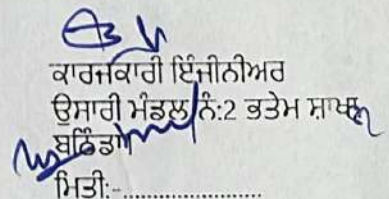 ਕਾਰਜਕਾਰੀ ਇੰਜੀਨੀਅਰ
ਉਸਾਰੀ ਮੰਡਲ ਨੰ:2 ਭਤੇਮ ਸ਼ਾਖਾ
ਬਠਿੰਡਾ
ਮਿਤੀ:-.....................